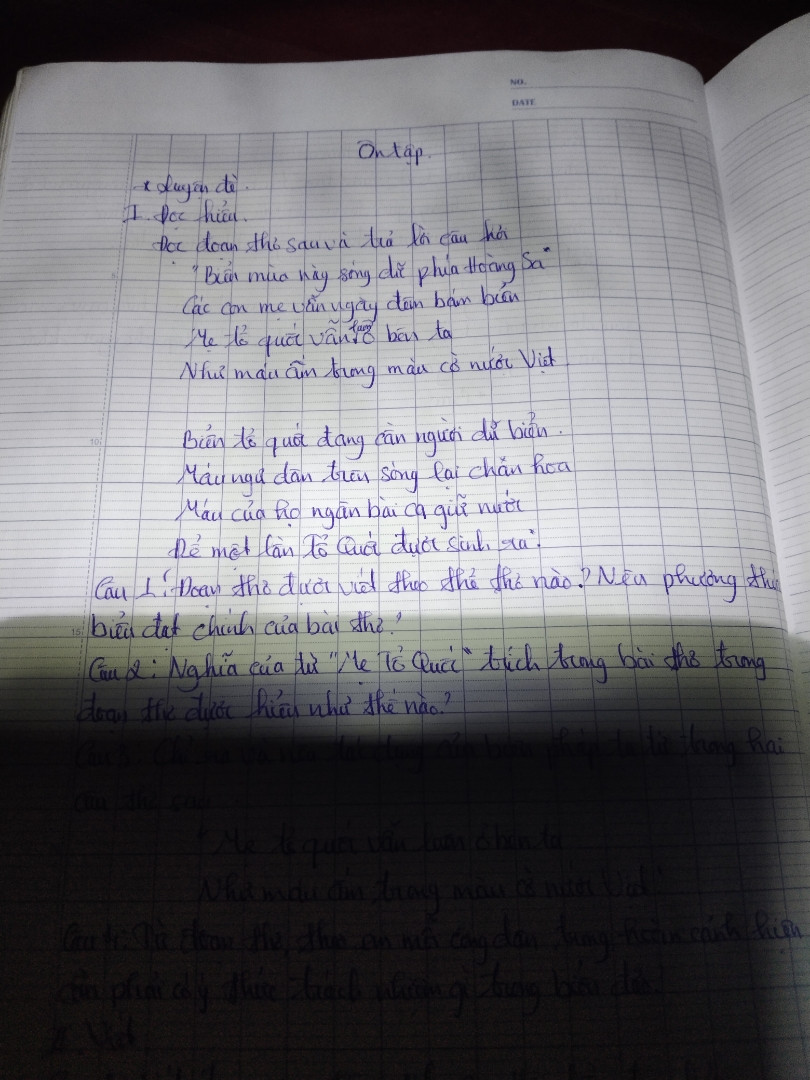 NO.
DATE
Ôn tập.
* Luyện đề.
I. Đọc hiểu.
Đọc đoạn thơ sau và trả lời câu hỏi
"Biển mùa này sóng dữ phía Hoàng Sa"
Các con mẹ vẫn ngày đêm bám biển
Mẹ tổ quốc vẫn luôn ở bên ta
Như máu ấm trong màu cờ nước Việt
10
Biển tổ quốc đang cần người giữ biển.
Máu ngư dân trên sóng lại chăn hoa
Máu của họ ngân bài ca giữ nước
Để một lần Tổ Quốc được sinh ra".
Câu 1: Đoạn thơ được viết theo thể thơ nào? Nêu phương thức
15 biểu đạt chính của bài thơ?
Câu 2: Nghĩa của từ "Mẹ Tổ Quốc" trích trong bài thơ trong
đoạn thơ được hiểu như thế nào?
Câu 3: Chỉ ra và nêu tác dụng của biện pháp tu từ trong hai
câu thơ sau
"Mẹ tổ quốc vẫn luôn ở bên ta
Như máu ấm trong màu cờ nước Việt"
Câu 4: Từ đoạn thơ, theo em mỗi công dân trong hoàn cảnh hiện
cần phải có ý thức trách nhiệm gì trong biển đảo?
II. Viết